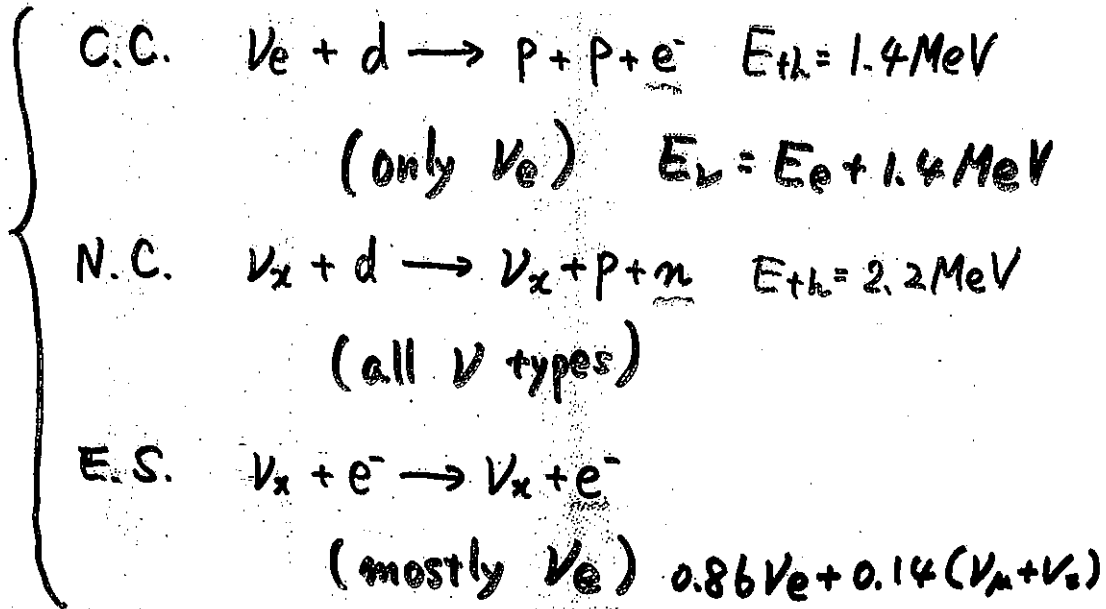 C.C. νe + d → p + p + e⁻ Eth = 1.4 MeV
(only νe) Eν = Ee + 1.4 MeV
N.C. νx + d → νx + p + n Eth = 2.2 MeV
(all ν types)
E.S. νx + e⁻ → νx + e⁻
(mostly νe) 0.86 νe + 0.14 (νμ + ντ)